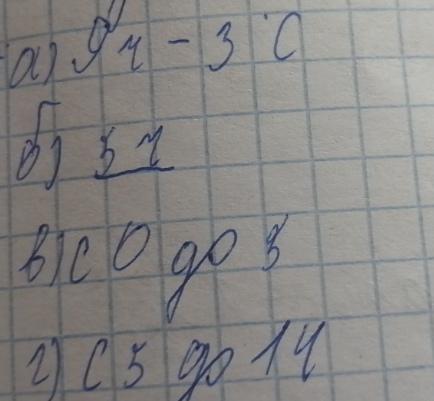 а) 9 ч - 3 °C
б) 5 ч
в) с 0 до 5
г) с 5 до 14